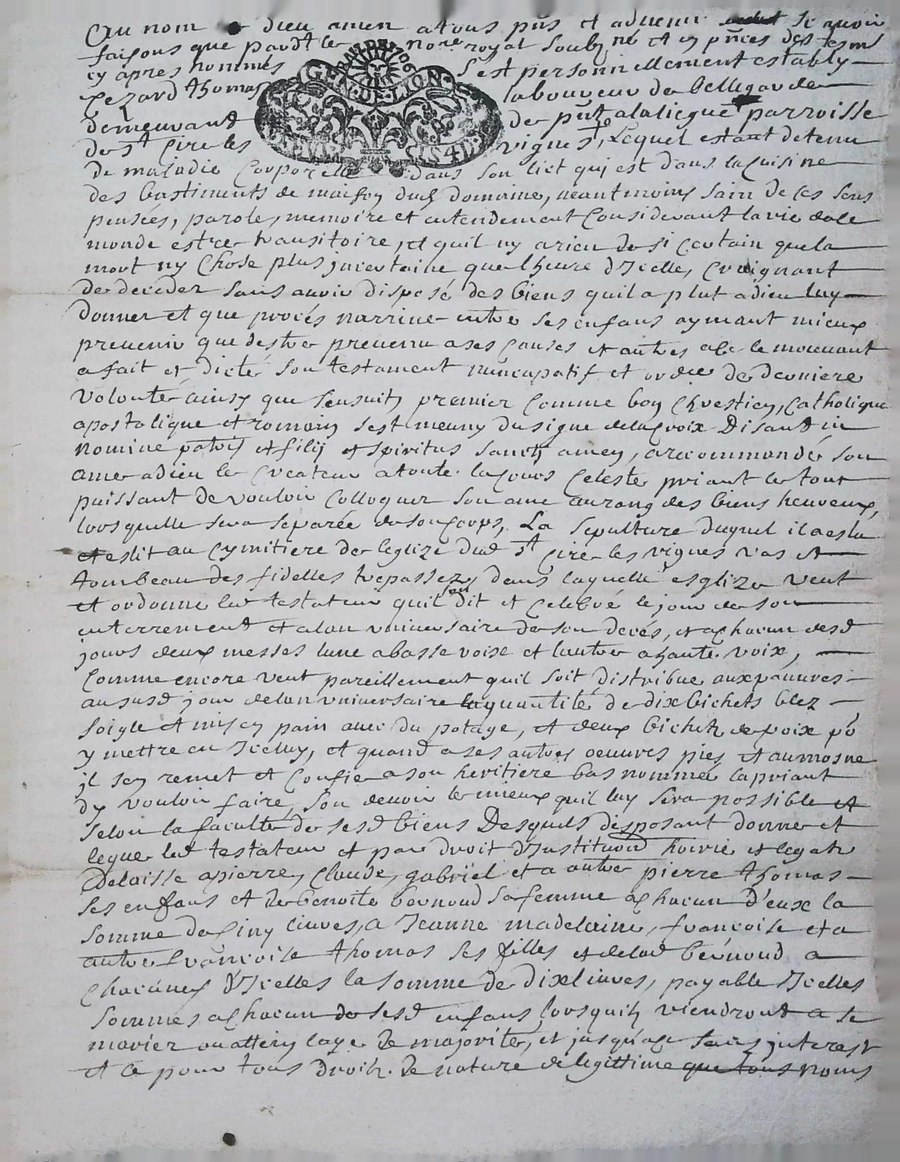 Au nom de dieu amen a tous pnts et advenir Scavoir
faisons que pardt le nore royal soubné et en pnces des tesms
cy apres nommés sest personnellement estably
pezard thomas laboureur de bellegarde
demeurant de pnt a la liegue parroisse
de st Cire les vignes, Lequel estant detenu
de maladie Corporelle dans son lict qui est dans la cuisine
des bastiments de maison dud domaine, neantmoins sain de ses sens
pensées, parole, memoire et entendement Considerant la vie de le
monde estre transitoire, et quil ny a rien de si certain que la
mort ny Chose plus jncertaine que lheure d'Jcelle, Craignant
de deceder sans avoir disposé des biens quil a plut a dieu luy
donner et que procés narrive entre ses enfans aymant mieux
prevenir que destre prevenu a ses Causes et autres a le mouvant
a fait et dicté son testament nuncupatif et ordre de derniere
volonté ainsy que sensuit, premier Comme bon Chrestien, Catholique
apostalique et romain sest meuny du signe de la Croix Disant in
nomine patris et filij et spiritus sancti amen, a recommandé son
ame a dieu le Createur a toute la cours Celeste priant le tout
puissant de vouloir Colloquer son ame au rang des biens heureux,
lors quelle sera separée de son Corps, La sepulture duquel il a eslu
et eslit au Cymitiere de leglize dud st Ciré les vignes vas et
tombeau des fidelles trepassez, dans laquelle esglize veut
et ordonne led testateur quil soit dit et Celebré le jour de son
enterrement et a lan vniversaire de son decés, et a Chacun desd
jours deux messes lune a basse voix et lautre a haute voix,
Comme encore veut pareillement quil soit distribue aux pauvres
au susd jour de lan vniversaire la quantité de dix bichets blez
soigle et mis en pain avec du potage, et deux bichets de poix po
y mettre en Jceluy, et quand a ses autres oeuvres pies et aumosne
il sen remet et Confie a son heritiere bas nommée la priant
dy vouloir faire son devoir le mieux quil luy sera possible et
selon la faculté de sesd biens Desquels disposant donne et
legue led testateur et par droit d'Jnstitution hoirie et legat
Delaisse a pierre, Claude, gabriël et a autre pierre thomas
ses enfans et de benoite bernoud sa femme a Chacun d'eux la
somme de Cinq livres, a Jeanne madelaine, françoise et a
autre françoise thomas ses filles et de lad bernoud a
Chacunes d'Jcelles la somme de dix livres, payable Jcelles
sommes a Chacun de sesd enfans lors quils viendront a se
marier ou attein laye de majorité, et jusqua ce sans jnterest
et ce pour tous droits de nature de legittime que tous noms
GEN·DE·LION